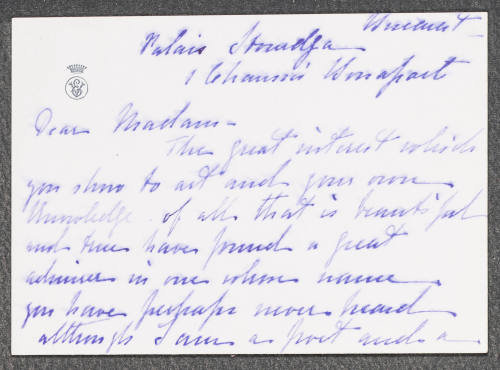 Bucarest
Palais Stourdza
1 Chaussée
Dear Madam -
The great interest which
you show to art and your own
knowledge of all that is beautiful
and true have found a great
admirer in one whose name
you have perhaps never heard
although I am a poet and a